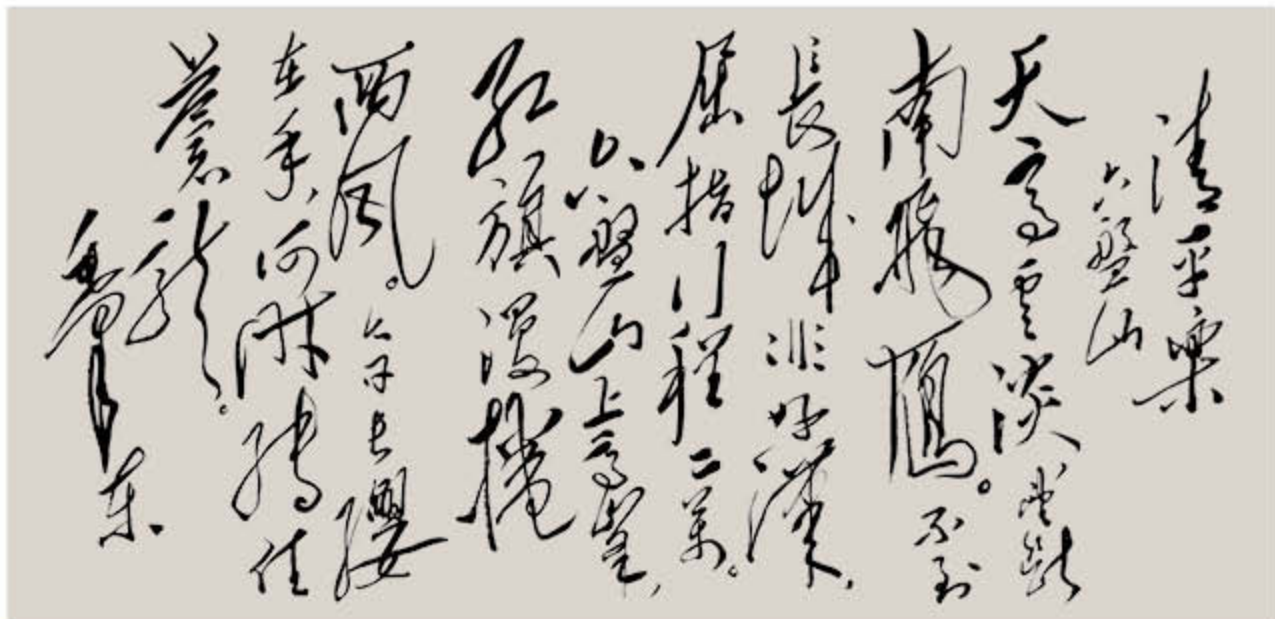 清平樂
六盤山
天高雲淡望斷
南飛雁。不到
長城非好漢，
屈指行程二萬。
六盤山上高峯，
紅旗漫捲
西風。今日長纓
在手，何時縛住
蒼龍。
毛澤東